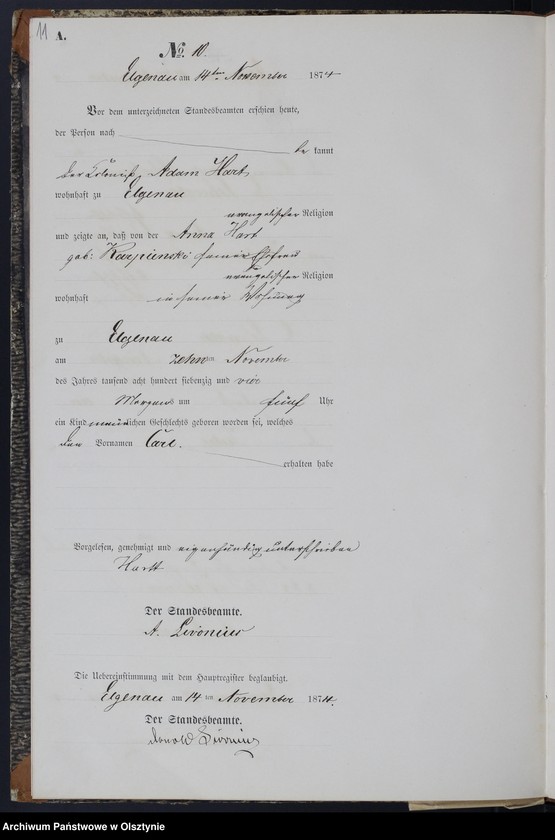 11
A.
No. 10.
Elgenau am 14ten November 1874
Vor dem unterzeichneten Standesbeamten erschien heute,
der Person nach
be kannt
der Adam Hart
wohnhaft zu Elgenau
evangelischer Religion
und zeigte an, daß von der Anna Hart
geb: Karpienski seiner Ehefrau
evangelischer Religion
wohnhaft in seiner Wohnung
zu Elgenau
am zehnten November
des Jahres tausend acht hundert siebenzig und vier
Morgens um fünf Uhr
ein Kind männlichen Geschlechts geboren worden sei, welches
den Vornamen Carl.
erhalten habe
Vorgelesen, genehmigt und eigenhändig unterschrieben
Hartt
Der Standesbeamte.
A. Livonius
Die Uebereinstimmung mit dem Hauptregister beglaubigt.
Elgenau am 14 ten November 1874.
Der Standesbeamte.
Livonius
Archiwum Państwowe w Olsztynie